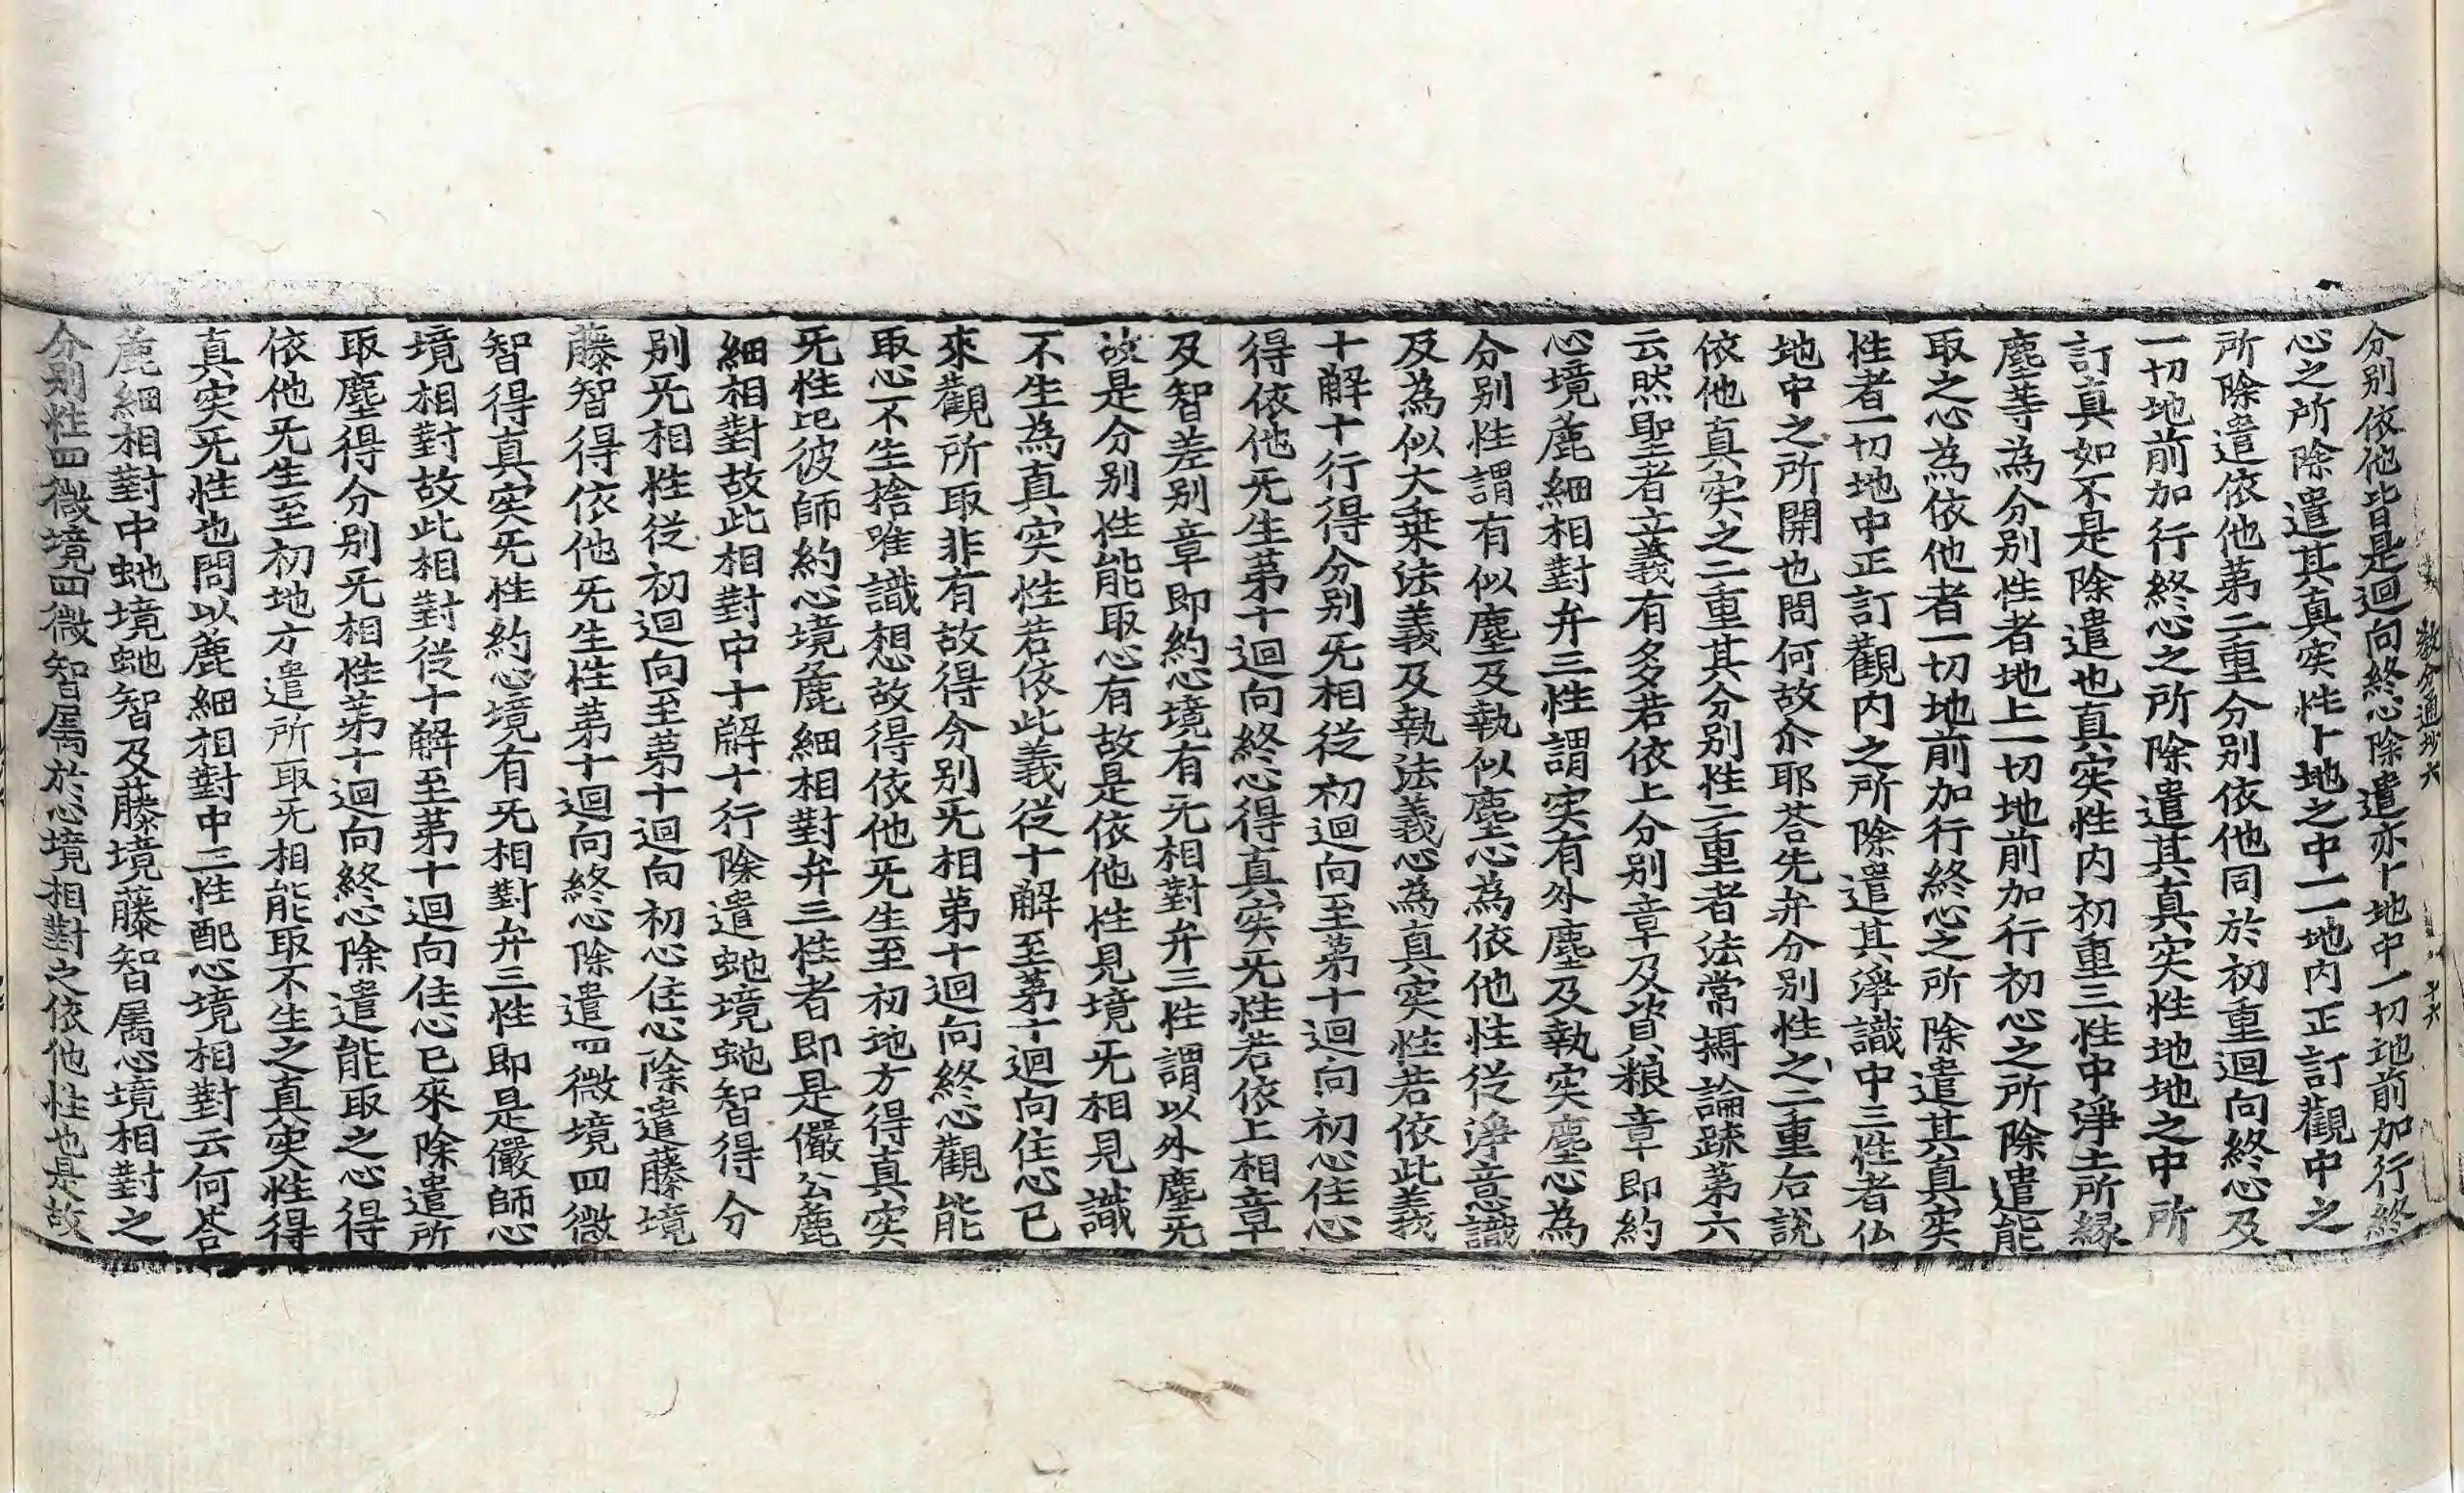 教分通抄六
分別依他皆是迴向終心除遣亦卜地中一切地前加行終
心之所除遣其真実性卜地之中一一地内正訂觀中之
所除遣依他第二重分別依他同於初重迴向終心及
一切地前加行終心之所除遣其真実性地地之中所
訂真如不是除遣也真実性内初重三性中淨土所緣
塵等為分別性者地上一切地前加行初心之所除遣能
取之心為依他者一切地前加行終心之所除遣其真実
性者一切地中正訂觀内之所除遣其淨識中三性者仏
地中之所開也問何故尒耶荅先弁分別性之二重右說
依他真実之二重其分別性二重者法常攝論踈第六
云然聖者立義有多若依上分別章及資粮章即約
心境麁細相對弁三性謂実有外塵及執実塵心為
分別性謂有似塵及執似塵心為依他性從淨意識
及為似大乗法義及執法義心為真実性若依此義
十解十行得分別旡相從初迴向至第十迴向初心住心
得依他旡生第十迴向終心得真実旡性若依上相章
及智差別章即約心境有旡相對弁三性謂以外塵旡
故是分別性能取心有故是依他性見境旡相見識
不生為真実性若依此義從十解至第十迴向住心已
來觀所取非有故得分別旡相第十迴向終心觀能
取心不生捨唯識想故得依他旡生至初地方得真実
旡性比彼師約心境麁細相對弁三性者即是儼公麁
細相對故此相對中十解十行除遣虵境虵智得分
別旡相性從初迴向至第十迴向初心住心除遣藤境
藤智得依他旡生性第十迴向終心除遣四微境四微
智得真実旡性約心境有旡相對弁三性即是儼師心
境相對故此相對從十解至第十迴向住心已來除遣所
取塵得分別旡相性第十迴向終心除遣能取之心得
依他旡生至初地方遣所取旡相能取不生之真実性得
真実旡性也問以麁細相對中三性配心境相對云何荅
麁細相對中虵境虵智及藤境藤智属心境相對之
分別性四微境四微智属於心境相對之依他性也是故